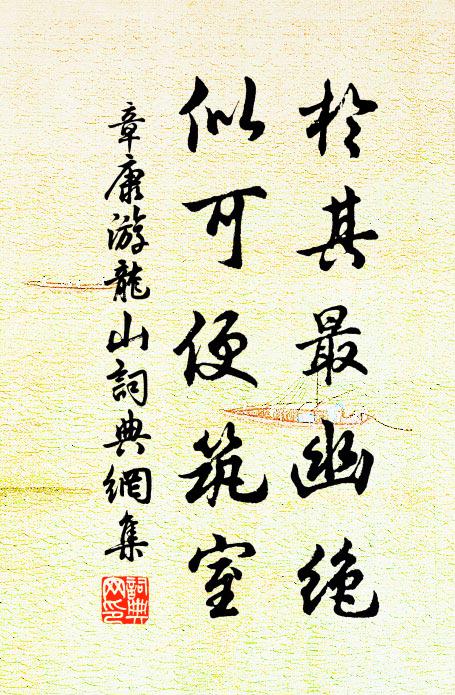 於其最幽絶
似可便筑室
章康游龍山詞典網集
詞典
网印